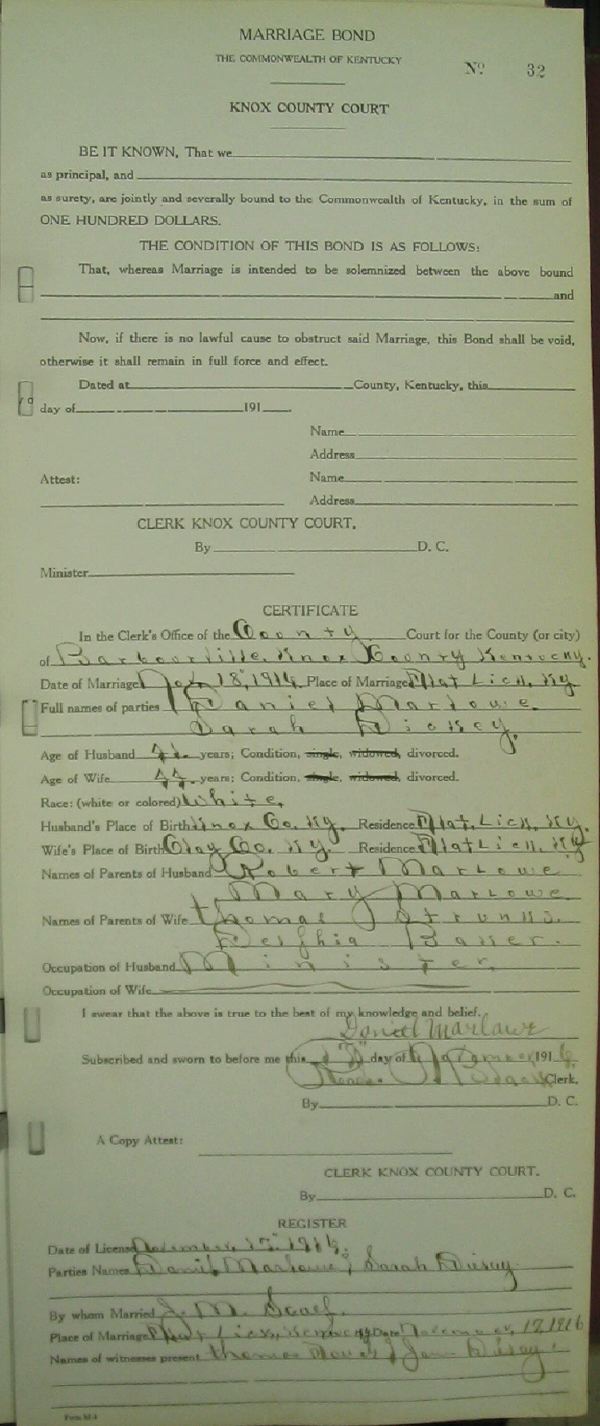 MARRIAGE BOND
THE COMMONWEALTH OF KENTUCKY
No 32
KNOX COUNTY COURT
BE IT KNOWN, That we
as principal, and
as surety, are jointly and severally bound to the Commonwealth of Kentucky, in the sum of
ONE HUNDRED DOLLARS.
THE CONDITION OF THIS BOND IS AS FOLLOWS:
That, whereas Marriage is intended to be solemnized between the above bound
and
Now, if there is no lawful cause to obstruct said Marriage, this Bond shall be void,
otherwise it shall remain in full force and effect.
Dated at County, Kentucky, this
day of 191
Name
Address
Attest: Name
Address
CLERK KNOX COUNTY COURT.
By D. C.
Minister
CERTIFICATE
In the Clerk's Office of the County Court for the County (or city)
of Barbourville, Knox County Kentucky.
Date of Marriage Nov. 18, 1916 Place of Marriage Flat Lick, Ky
Full names of parties Daniel Marlowe.
Sarah
Age of Husband years; Condition, single, widowed, divorced.
Age of Wife 44. years; Condition, single, widowed, divorced.
Race: (white or colored) White,
Husband's Place of Birth Knox Co. Ky. Residence Flat, Lick, Ky.
Wife's Place of Birth Clay Co. Ky. Residence Flat Lick, Ky
Names of Parents of Husband Robert Marlowe
Mary Marlowe
Names of Parents of Wife Thomas
Delphia Baker.
Occupation of Husband Minister,
Occupation of Wife
I swear that the above is true to the best of my knowledge and belief.
Daniel Marlowe
Subscribed and sworn to before me this day of November 1916
Clerk,
By D. C.
A Copy Attest:
CLERK KNOX COUNTY COURT.
By D. C.
REGISTER
Date of License November, 1916.
Parties Names Daniel Marlowe, Sarah
By whom Married J. M.
Place of Marriage Flat Lick, Kentucky Date November, 1916
Names of witnesses present Thomas
Form M-4